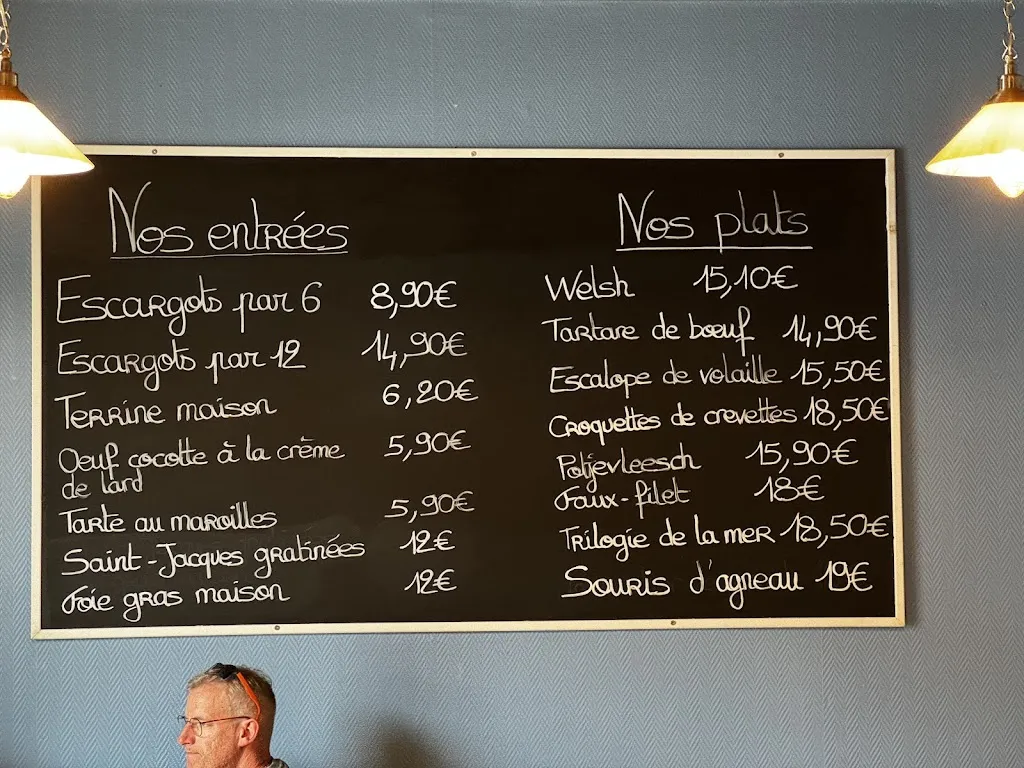 Nos entrées
Escargots par 6 8,90€
Escargots par 12 14,90€
Terrine maison 6,20€
Oeuf cocotte à la crème 5,90€
de lard
Tarte au maroilles 5,90€
Saint-Jacques gratinées 12€
Foie gras maison 12€
Nos plats
Welsh 15,10€
Tartare de bœuf 14,90€
Escalope de volaille 15,50€
Croquettes de crevettes 18,50€
Potjevleesch 15,90€
Faux-filet 18€
Trilogie de la mer 18,50€
Souris d'agneau 19€